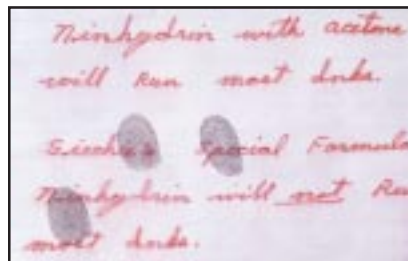 Ninhydrin with acetone
will Run most Inks.
Special Formula
Ninhydrin will not Ru
most Inks.